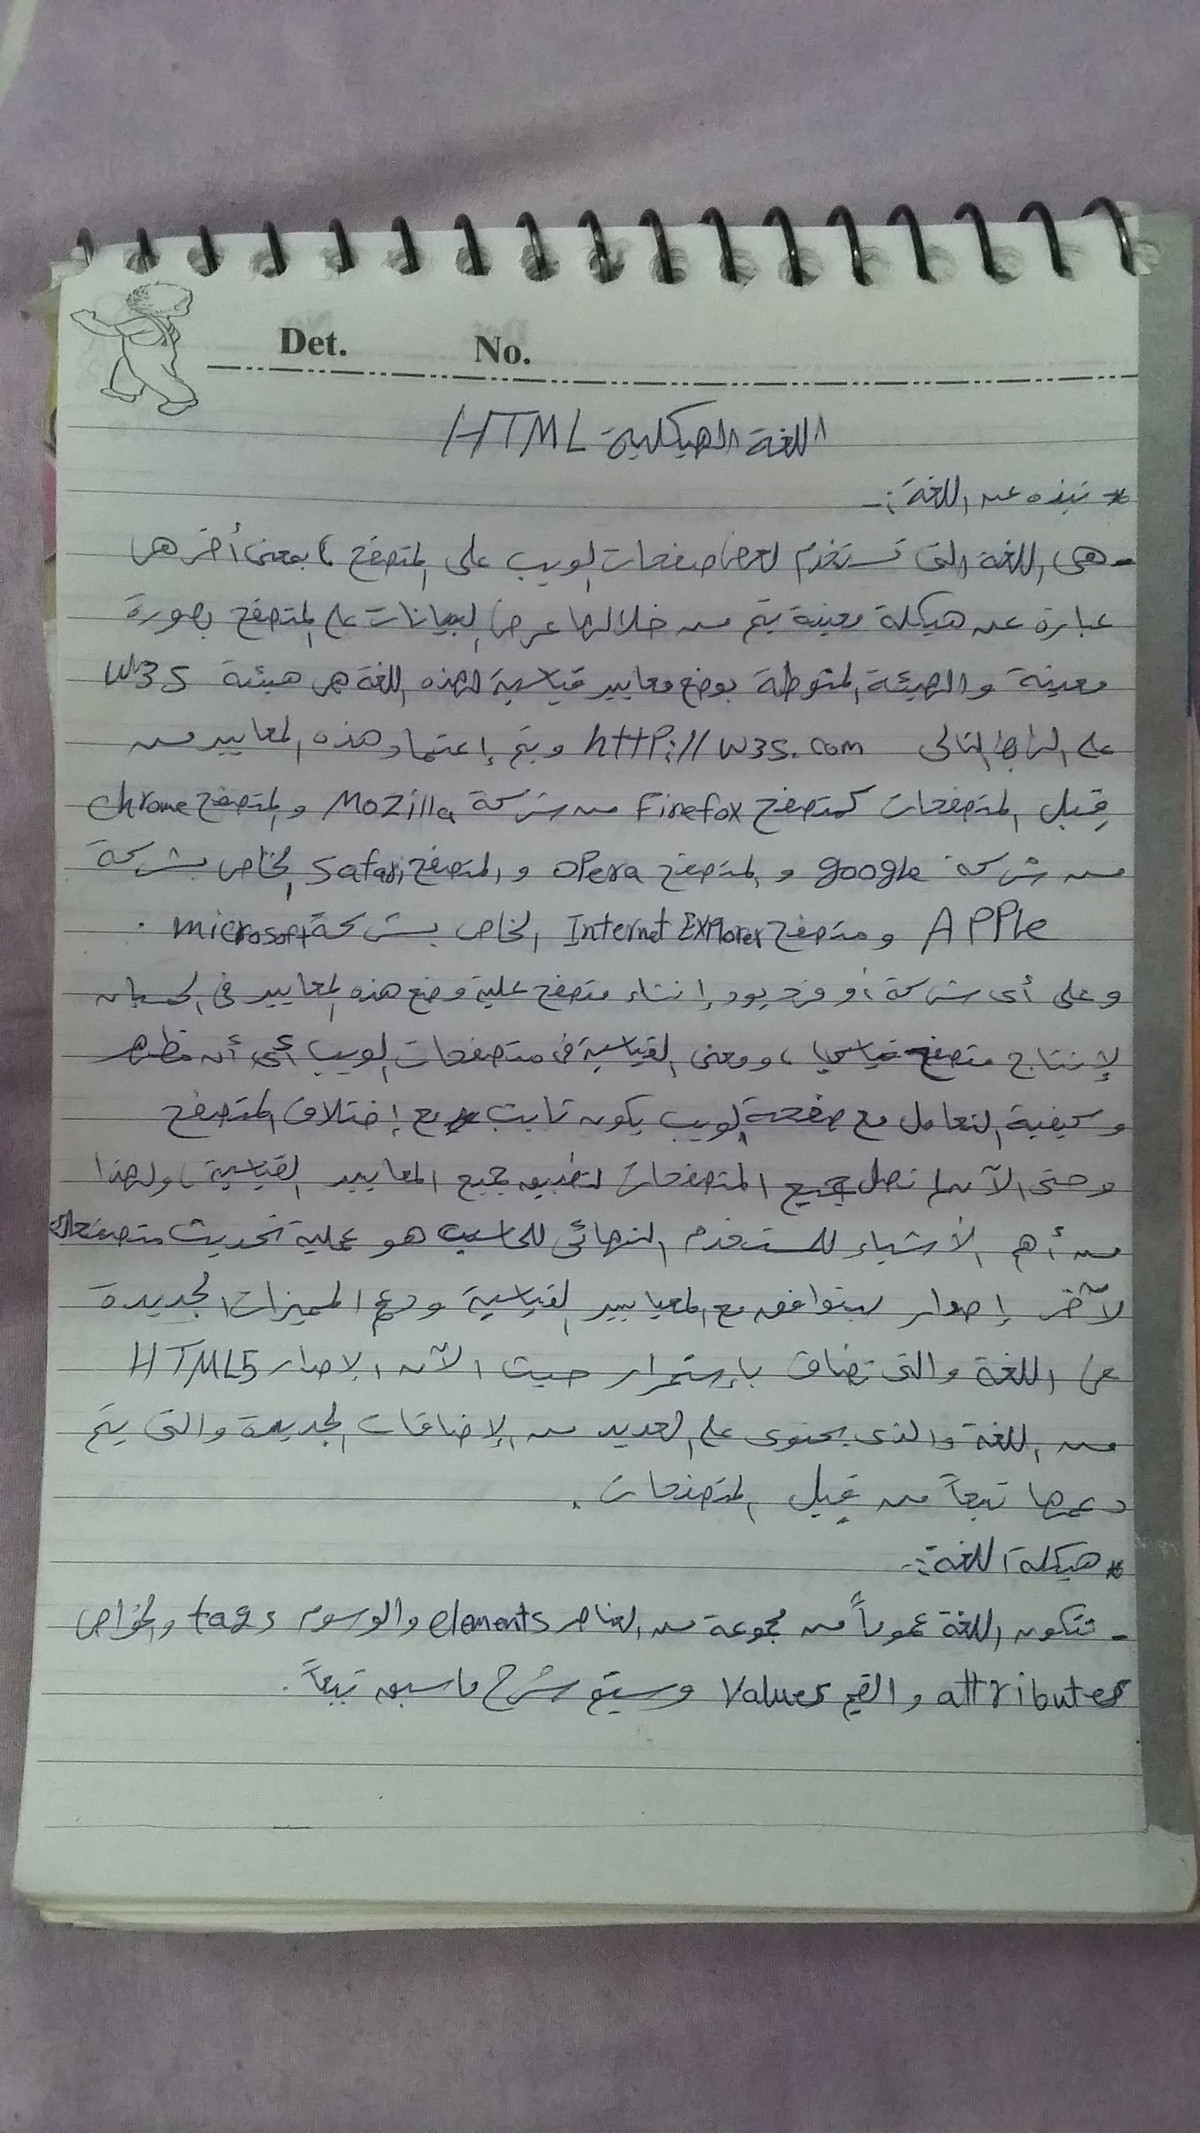 Det. No.
اللغة الهيكلية HTML
* نبذه عن اللغة :-
- هى اللغة التى تستخدم لعرض صفحات الويب على المتصفح ، بمعنى أخر هى
عبارة عن هيكلة معينة يتم من خلالها عرض البيانات على المتصفح بصورة
معينة والهيئة المنوطة بوضع معايير قياسية لهذه اللغة هى هيئة W3S
على الرابط التالى http://w3s.com ويتم إعتماد هذه المعايير من
قِبل المتصفحات كمتصفح Firefox من شركة Mozilla والمتصفح chrome
من شركة google والمتصفح opera والمتصفح Safari الخاص بشركة
APPle ومتصفح Internet Explorer الخاص بشركة microsoft .
وعلى أى شركة أو فرد يود إنشاء متصفح علية وضع هذه المعايير فى الحسبان
لإنتاج متصفح قياسيا ، ومعنى القياسية فى متصفحات الويب أى أن مظهر
وكيفية التعامل مع صفحة الويب يكون ثابت مع إختلاف المتصفح
وحتى الآن لم تصل جميع المتصفحات لتطبيق جميع المعايير القياسية ، ولهذا
من أهم الأشياء للمستخدم النهائى للحاسب هو عملية تحديث متصفحك
لآخر إصدار ليتوافق مع المعايير القياسية ودعم المميزات الجديدة
من اللغة والتى تضاف بإستمرار حيث الآن الإصدار HTML5
من اللغة والذى يحتوى على العديد من الإضافات الجديدة والتى يتم
دعمها تبعاً من قِبل المتصفحات .
* هيكلة اللغة :-
- تتكون اللغة عموماً من مجموعة من العناصر elements والوسوم tags والخواص
attributes والقيم Values وسيتم شرح ماسبق تبعاً .